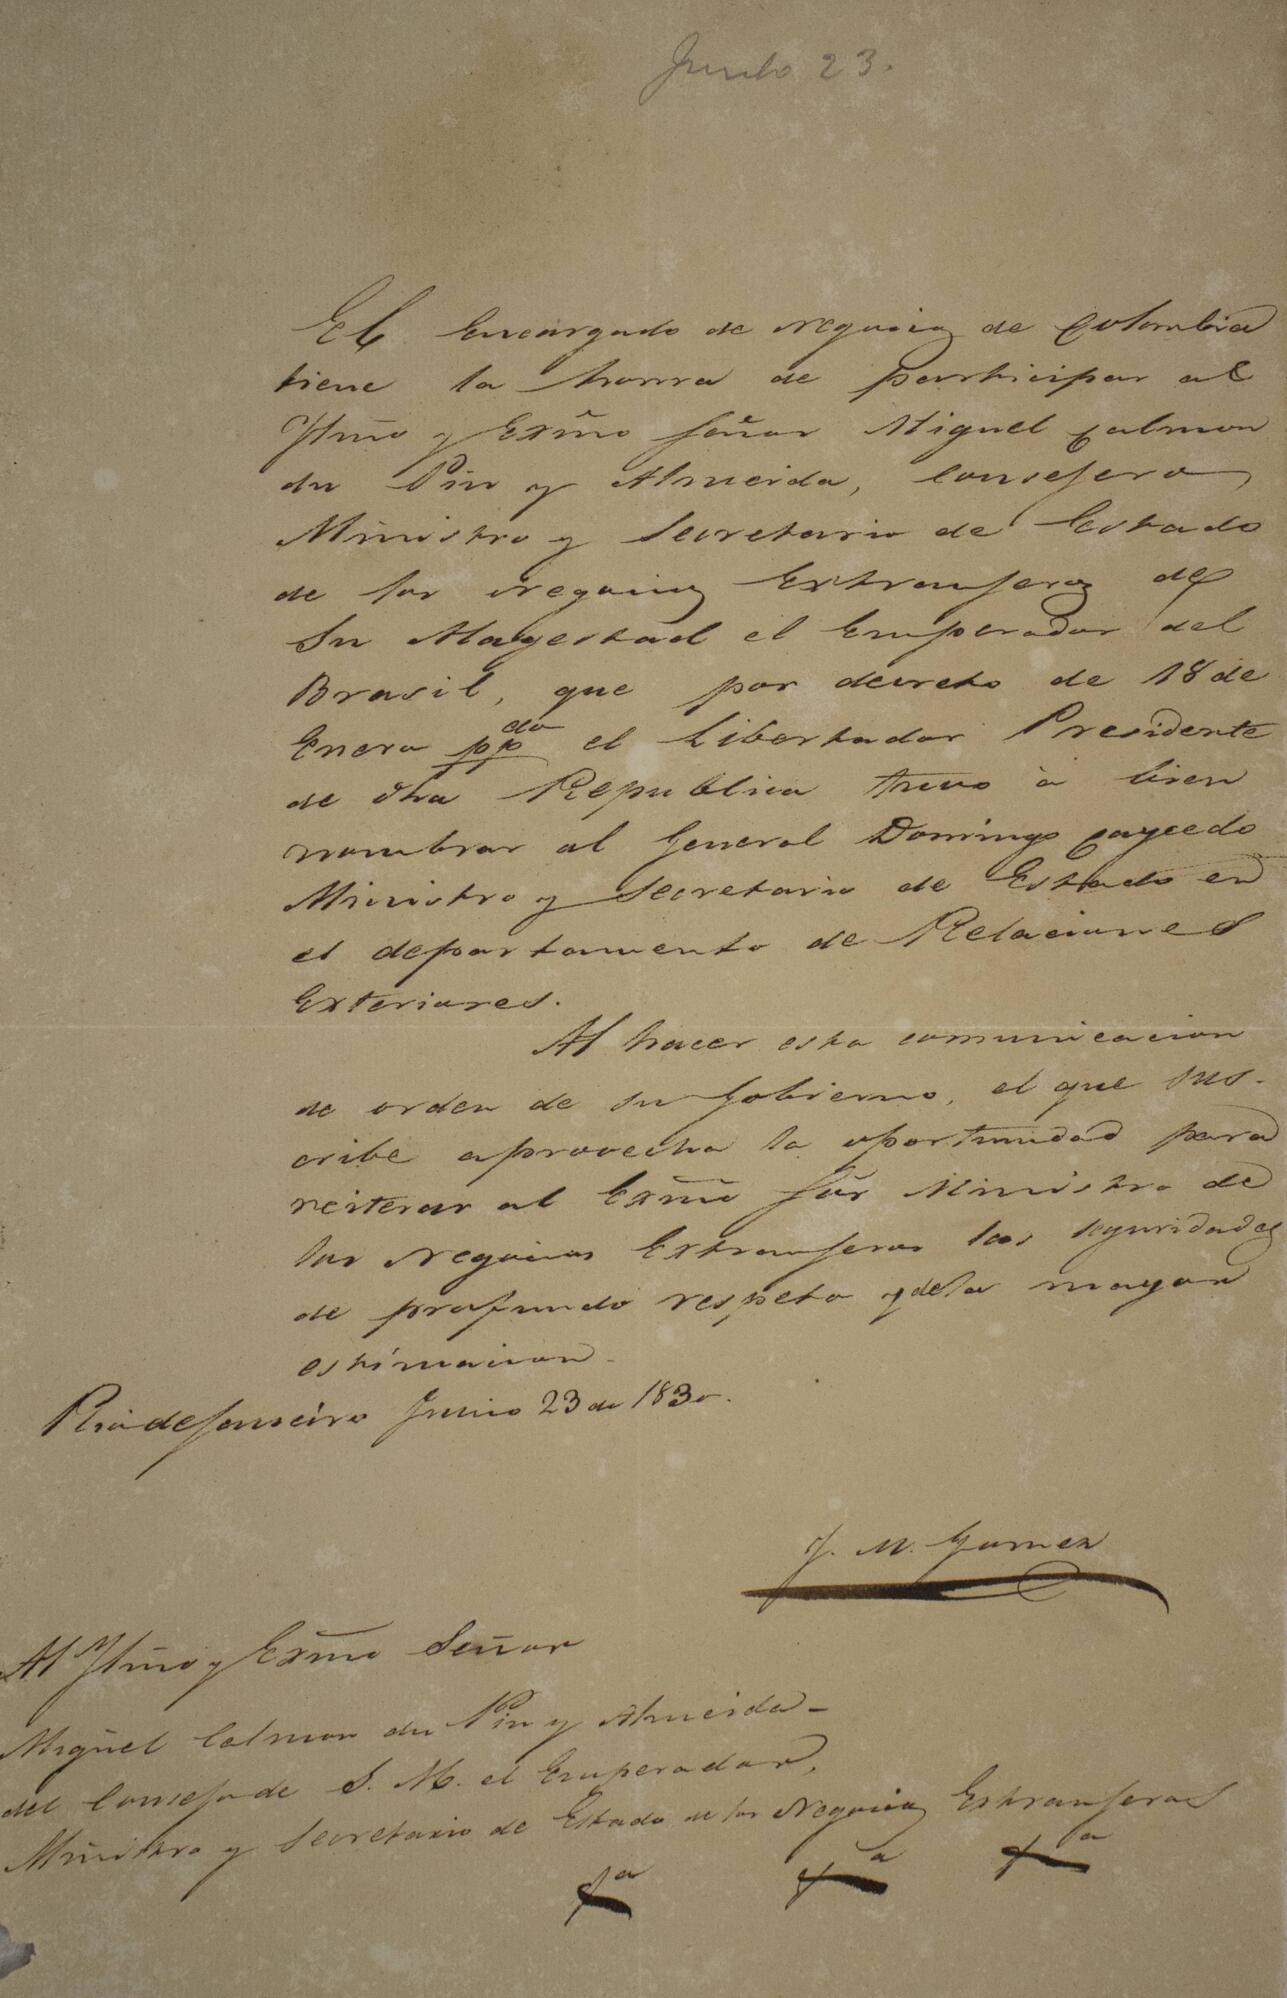 Junio 23.
El Encargado de Negocios de Colombia
tiene la honra de participar al
Yltmo y Exmo Señor Miguel Calmon
du Pin y Almeida, Consejero,
Ministro y Secretario de Estado
de los Negocios Extranjeros de
Su Magestad el Emperador del
Brasil, que por decreto de 18 de
Enero ppdo el Libertador Presidente
de dha Republica tuvo à bien
nombrar al General Domingo Caycedo
Ministro y Secretario de Estado en
el departamento de Relaciones
Exteriores.
Al hacer esta comunicacion
de orden de su Gobierno, el que sus-
cribe aprovecha la oportunidad para
reiterar al Exmo Sõr Ministro de
los Negocios Extranjeros las seguridades
de profundo respeto y de la mayor
estimacion.
Rio de Janeiro Junio 23 de 1830.
J. M. Gomez
Al Yltmo y Exmo Señor
Miguel Calmon du Pin y Almeida-
del Consejo de S. M. el Emperador,
Ministro y Secretario de Estado de los Negocios Extranjeros